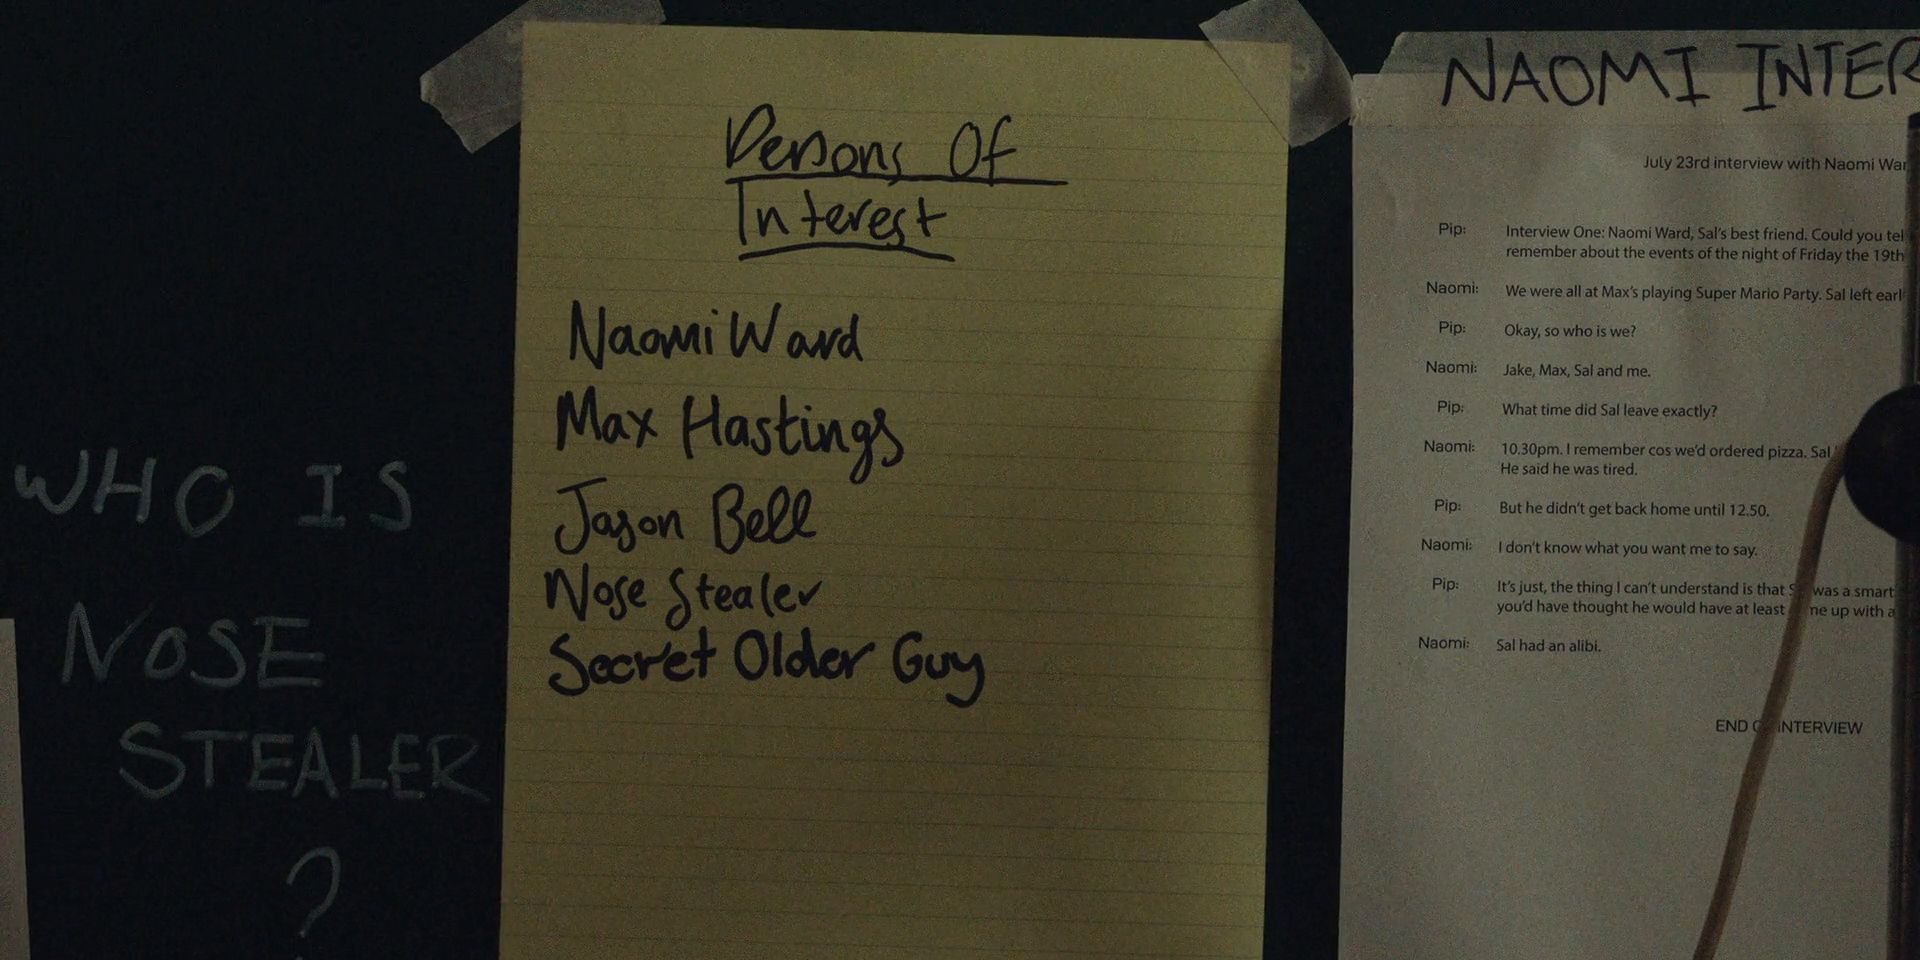 WHO IS
NOSE
STEALER
?
Persons Of
Interest
Naomi Ward
Max Hastings
Jason Bell
Nose Stealer
Secret Older Guy
NAOMI INTER
July 23rd interview with Naomi War
Pip: Interview One: Naomi Ward, Sal's best friend. Could you tel
remember about the events of the night of Friday the 19th
Naomi: We were all at Max's playing Super Mario Party. Sal left earl
Pip: Okay, so who is we?
Naomi: Jake, Max, Sal and me.
Pip: What time did Sal leave exactly?
Naomi: 10.30pm. I remember cos we'd ordered pizza. Sal
He said he was tired.
Pip: But he didn't get back home until 12.50.
Naomi: I don't know what you want me to say.
Pip: It's just, the thing I can't understand is that was a smart
you'd have thought he would have at least me up with a
Naomi: Sal had an alibi.
END INTERVIEW